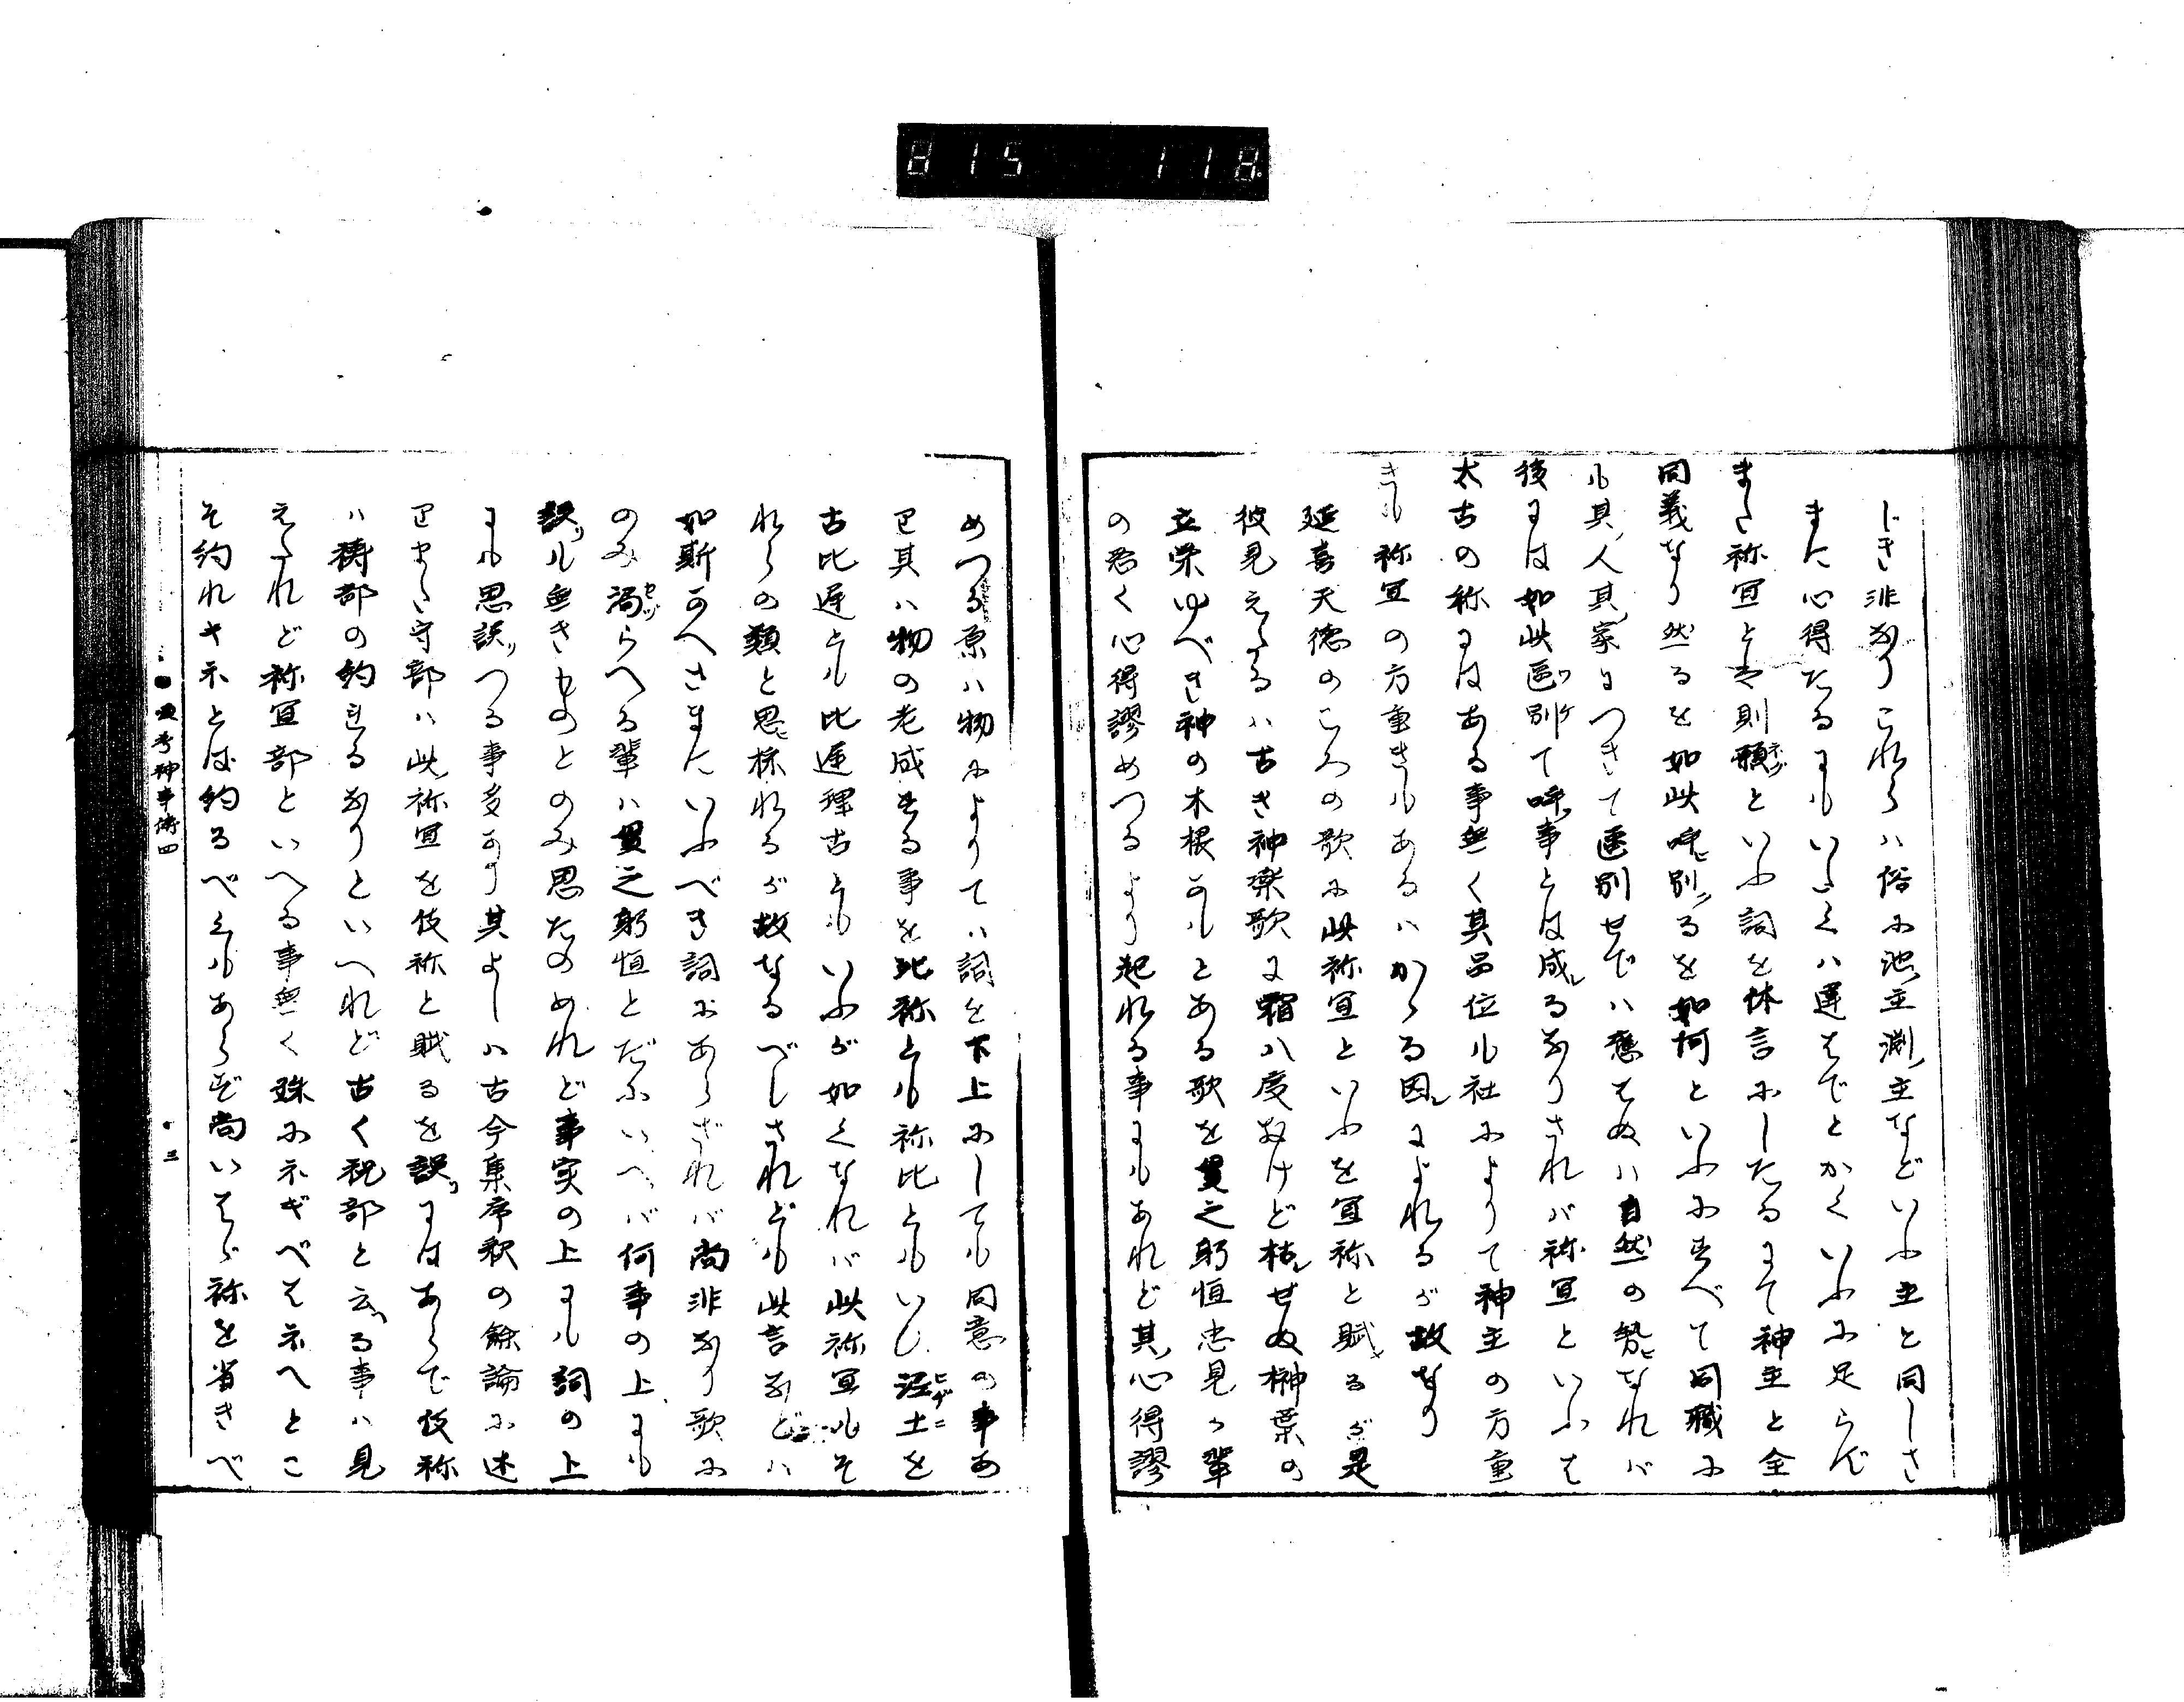 815 118
じき非なりこれらハ俗に池主淵主などいふ主と同しさ
まに心得たるにもいたくハ違はでとかくいふに足らず
また祢宜と云則願といふ詞を体言にしたるにて神主と全
同義なり然るを如此呼別るを如何といふにすべて同職に
も其人其家につきて区別せでハ応はぬハ自然の勢なれバ
後には如此区別て呼事とは成るなりされバ祢宜といふは
太古の称にはある事無く其品位も社によりて神主の方重
きも祢宜の方重きもあるハかゝる因によれるが故なり
延喜天徳のころの歌に此祢宜といふを宜祢と賦るが是
彼見えたるハ古き神楽歌に霜八度おけど枯せぬ榊葉の
立栄ゆべき神の木根かもとある歌を貫之躬恒忠見の輩
の悪く心得謬めつるより起れる事にもあれど其心得謬
めつる原ハ物によりてハ詞を下上にしても同意の事あ
り其ハ物の老成せる事を比祢とも祢比ともいひ泥土を
古比遅とも比遅理古ともいふが如くなれバ此祢宜もそ
れらの類と思ひ採れるが故なるべしされども此言などハ
如斯かへさまにいふべき詞にあらざれバ尚非なり歌に
のみ濁らへる輩ハ貫之躬恒とだにいへバ何事の上にも
誤も無きものとのみ思ためれど事実の上にも詞の上
にも思誤つる事多かり其よしハ古今集序釈の余論に述
りまた守部ハ此祢宜を伎祢と賦るを誤にはあらで伎祢
ハ祷部の約れるなりといへれど古く祝部と云る事ハ見
えたれど祢宜部といへる事無く殊にネギベはネヘとこ
そ約れキネとは約るべくもあらず尚いはゞ祢を省きべ
神事傍四
三